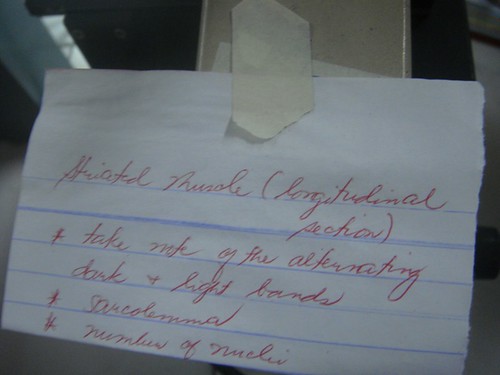 Striated Muscle (longitudinal
section)
* take note of the alternating
dark & light bands
* sarcolemma
* number of nuclei